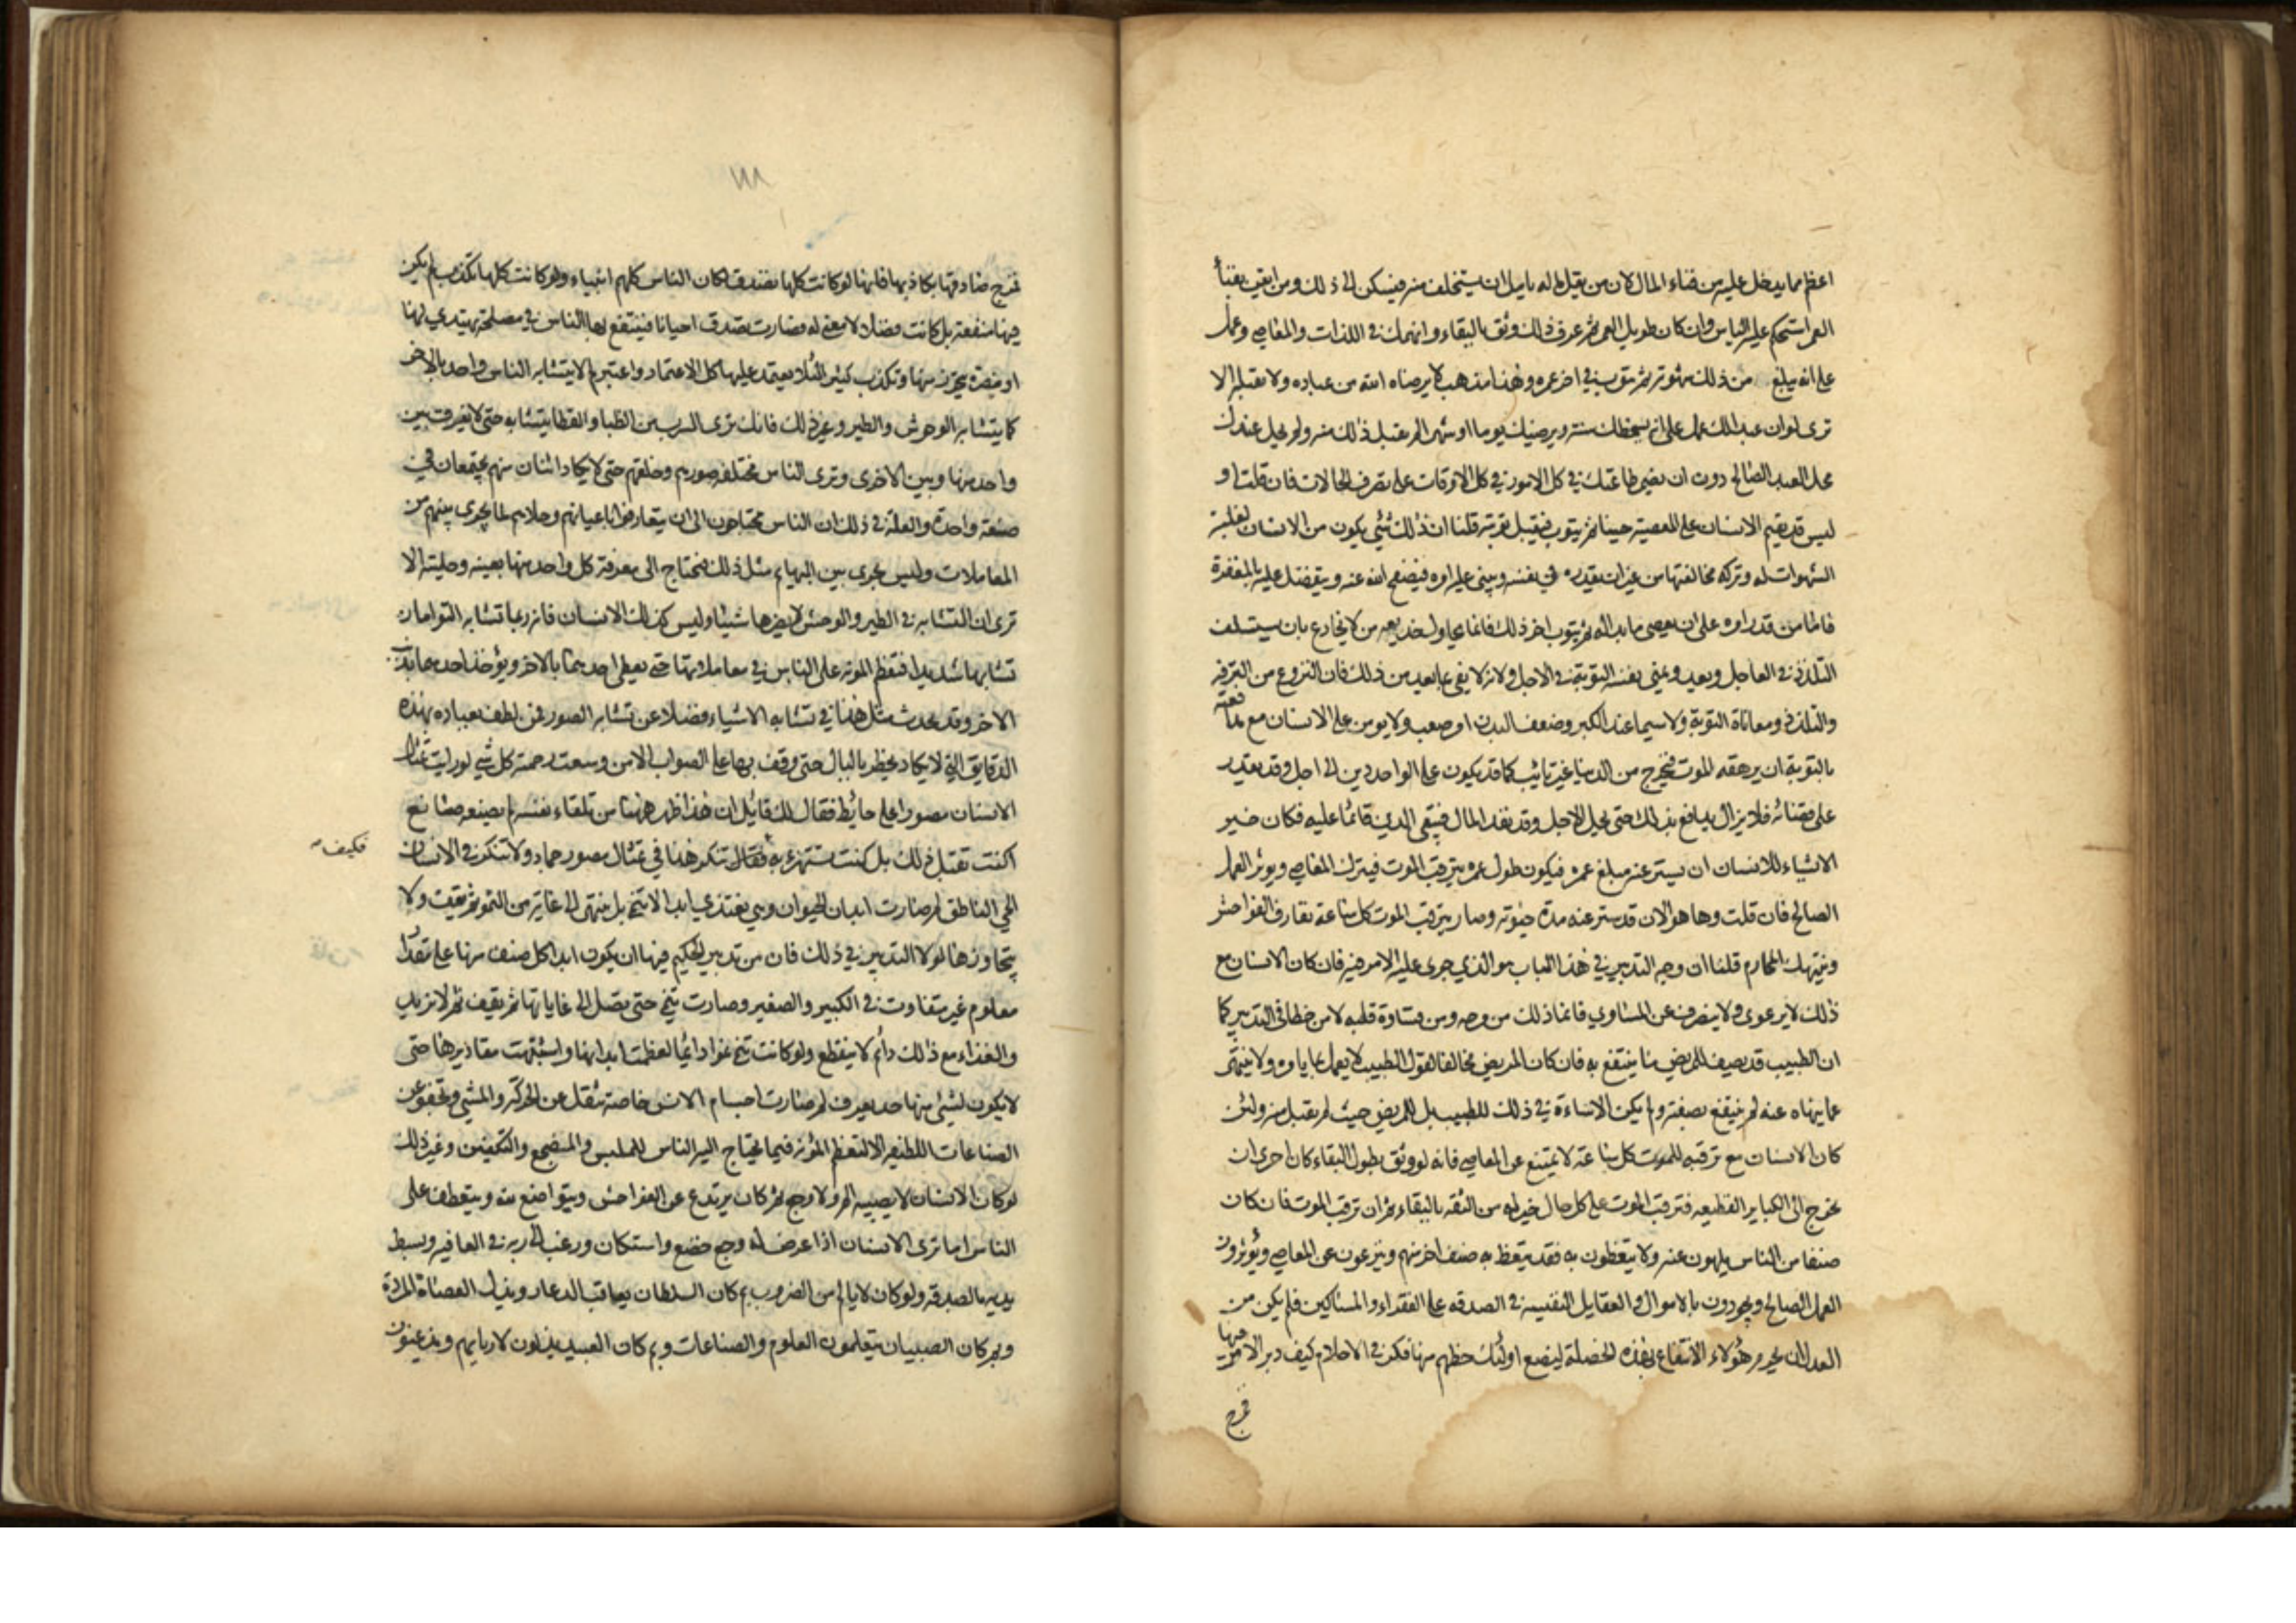 اعظم مما يدخل عليه من فناء المال لان من يقل ماله يامل ان يستخلف منه فيسكن الى ذلك ومن ايقن بفناء
العمر استحكم عليه الياس وان كان طويل العمر ثم عرف ذلك وثق بالبقاء وانهمك في اللذات والمعاصي وعمل
على انه يبلغ من ذلك شهوته ثم يتوب في اخر عمره وهذا مذهب لا يرضاه الله من عباده ولا يقبله الا
ترى لو ان عبدا لك عمل على انه يسخطك سنة ويرضيك يوما او شهرا لم تقبل ذلك منه ولم يحل عندك
محل العبد الصالح دون ان يضمر طاعتك في كل الامور في كل الاوقات على تصرف الحالات فان قلت او
ليس قد يقيم الانسان على المعصية حينا ثم يتوب فيقبل توبته قلنا ان ذلك شيء يكون من الانسان لغلبة
الشهوات له وتركه مخالفتها من غير ان يقدره في نفسه ويبني عليه امره فيصفح الله عنه ويتفضل عليه بالمغفرة
فاما من قدر امره على ان يعصي ما بدا له ثم يتوب اخر ذلك فانما يحاول خديعة من لا يخادع بان يستسلف
التلذذ في العاجل ويعد ويمني نفسه التوبة في الاجل ولانه لا يفي بما يعد من ذلك فان النزوع من الترفه
والتلذذ ومعاناة التوبة ولا سيما عند الكبر وضعف البدن امر صعب ولا يومن على الانسان مع مدافعته
بالتوبة ان يرهقه الموت فيخرج من الدنيا غير تائب كما قد يكون على الواحد دين الى اجل وقد يقدر
على قضائه فلا يزال يدافع بذلك حتى يحل الاجل وقد نفد المال فيبقى الدين قائما عليه فكان خير
الاشياء للانسان ان يستر عنه مبلغ عمره فيكون طول عمره يترقب الموت فيترك المعاصي ويوثر العمل
الصالح فان قلت وها هو الان قد ستر عنه مدة حيوته وصار يترقب الموت كل ساعة يقارف الفواحش
وينتهك المحارم قلنا ان وجه التدبير في هذا الباب هو الذي جرى عليه الامر فيه فان كان الانسان مع
ذلك لا يرعوي ولا ينصرف عن المساوي فانما ذلك من مرحه ومن قساوة قلبه لا من خطا في التدبير كما
ان الطبيب قد يصف للمريض ما ينتفع به فان كان المريض مخالفا لقول الطبيب لا يعمل بما يامره ولا ينتهي
عما ينهاه عنه لم ينتفع بصفته ولم يكن الاساءة في ذلك للطبيب بل للمريض حيث لم يقبل منه ولئن
كان الانسان مع ترقبه للموت كل ساعة لا يمتنع عن المعاصي فانه لو وثق بطول البقاء كان احرى ان
يخرج الى الكباير الفظيعه فترقب الموت على كل حال خير له من الثقه بالبقاء ثم ان ترقب الموت فان كان
صنفا من الناس يلهون عنه ولا يتعظون به فقد يتعظ به صنف اخر منهم وينزعون عن المعاصي ويؤثرون
العمل الصالح ويجودون بالاموال والعقايل النفيسه في الصدقه على الفقراء والمساكين فلم يكن من
العدل ان يحرم هؤلاء الانتفاع بهذه الخصلة ليضيع اولئك حظهم منها فكر في الاحلام كيف دبر الامر فيها
فمزج
فمزج صادقها بكاذبها فانها لو كانت كلها تصدق لكان الناس كلهم انبياء ولو كانت كلها تكذب لم يكن
فيها منفعة بل كانت فضلا لا معنى له فصارت تصدق احيانا فينتفع بها الناس في مصلحة يهتدي لها
او مضرة يتحرز منها وتكذب كثيرا لئلا يعتمد عليها كل الاعتماد واعتبر لم لا يتشابه الناس واحد بالاخر
كما يتشابه الوحوش والطير وغير ذلك فانك ترى السرب من الظبا والقطا يتشابه حتى لا يفرق بين
واحد منها وبين الاخرى وترى الناس مختلفه صورهم وخلقهم حتى لا يكاد اثنان منهم يجتمعان في
صفة واحدة والعلة في ذلك ان الناس محتاجون الى ان يتعارفوا باعيانهم وحلاهم لما يجري بينهم من
المعاملات وليس يجري بين البهايم مثل ذلك فيحتاج الى معرفة كل واحد منها بعينه وحليته الا
ترى ان التشابه في الطير والوحش لا يضرها شيئا وليس كذلك الانسان فانه ربما تشابه التوامان
تشابها شديدا فتعظم المونه على الناس في معاملتهما حتى يعطى احدهما بالاخر ويؤخذ احدهما بذنب
الاخر وقد يحدث مثل هذا في تشابه الاشياء فضلا عن تشابه الصور فمن لطف بعباده بهذه
الدقايق التي لا يكاد يخطر بالبال حتى وقف بها على الصواب الا من وسعت رحمته كل شيء لو رايت تمثال
الانسان مصورا على حائط فقال لك قائل ان هذا ظهر ههنا من تلقاء نفسه لم يصنعه صانع
اكنت تقبل ذلك بل كنت تستهزء به فقال تنكر هذا في تمثال مصور جماد ولا تنكر في الانسان
فكيف
الحي الناطق لم صارت ابدان الحيوان وهي تغتذي ابدا لا تنمي بل ينتهي الى غاية من النمو ثم تقف ولا
يتجاوزها لولا التدبير في ذلك فان من تدبير الحكيم فيها ان يكون ابدان كل صنف منها على مقدار
معلوم غير متفاوت في الكبير والصغير وصارت تنمي حتى تصل الى غاياتها ثم يقف ثم لا تزيد
والغذاء مع ذلك دائم لا ينقطع ولو كانت تنمي نموا دائما لعظمت ابدانها واشتبهت مقاديرها حتى
لا يكون لشيء منها حد يعرف لم صارت اجسام الانس خاصة تثقل عن الحركة والمشي وتجفو عن
الصناعات اللطيفه الا لتعظم المؤنه فيما يحتاج اليه الناس للملبس والمضجع والتكفين وغير ذلك
لو كان الانسان لا يصيبه الم ولا وجع بم كان يرتدع عن الفواحش ويتواضع لله ويتعطف على
الناس اما ترى الانسان اذا عرض له وجع خضع واستكان ورغب الى ربه في العافيه وبسط
يديه بالصدقه ولو كان لا يالم من الضرب بم كان السلطان يعاقب الدعار ويذل العصاة المردة
وبم كان الصبيان يتعلمون العلوم والصناعات وبم كان العبيد يذلون لاربابهم ويذعنون